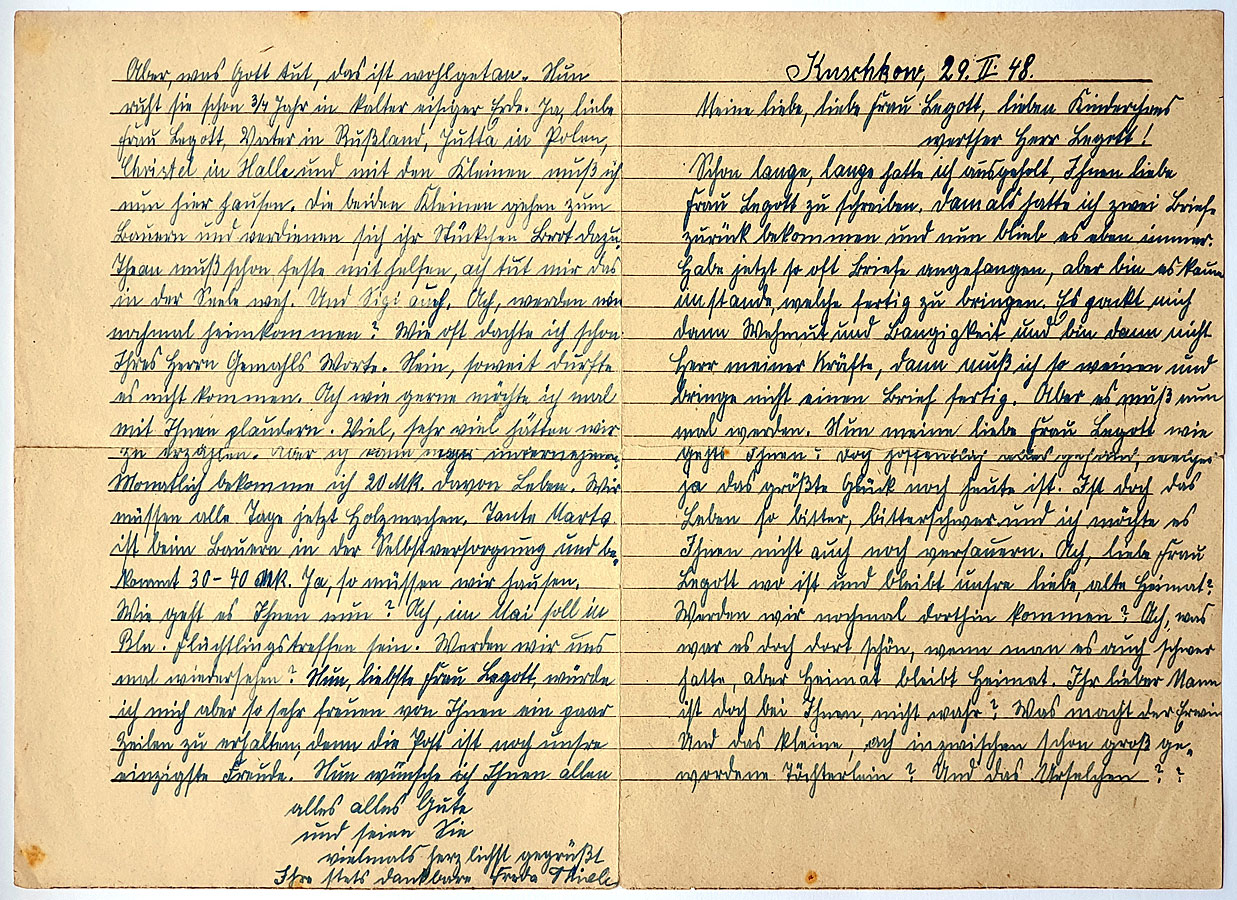 Kuschkow, 29. II. 48.
Meine liebe, liebe Frau Legott, lieben Kinderchens
werther Herr Legott!
Schon lange, lange hatte ich ausgeholt, Ihnen liebe
Frau Legott zu schreiben. Damals hatte ich zwei Briefe
zurück bekommen und nun blieb es eben immer.
Habe jetzt so oft Briefe angefangen, aber bin es kaum
imstande, welche fertig zu bringen. Es packt mich
dann Wehmut und Bangigkeit und bin dann nicht
Herr meiner Kräfte, dann muß ich so weinen und
bringe nicht einen Brief fertig. Aber es muß nun
mal werden. Nun meine liebe Frau Legott wie
gehts Ihnen? Doch hoffentlich alles gesund, welches
ja das größte Glück noch heute ist. Ist doch das
Leben so bitter, bitterschwer und ich möchte es
Ihnen nicht auch noch versauern. Ach, liebe Frau
Legott wo ist und bleibt unsre liebe, alte Heimat?
Werden wir nochmal dorthin kommen? Ach, was
war es doch dort schön, wenn man es auch schwer
hatte, aber Heimat bleibt Heimat. Ihr lieber Mann
ist doch bei Ihnen, nicht wahr? Was macht der Erwin
Und das kleine, ach inzwischen schon groß ge-
wordene Töchterlein? Und das Urselchen??
Aber, was Gott tut, das ist wohlgetan. Nun
ruht sie schon 3/4 Jahr in kalter eisiger Erde. Ja, liebe
Frau Legott, Vater in Rußland, Jutta in Polen,
Christel in Halle und mit den Kleinen muß ich
nun hier hausen. Die beiden Kleinen gehen zum
Bauern und verdienen sich ihr Stückchen Brot dazu.
Thean muß schon feste mithelfen, ach tut mir das
in der Seele weh. Und Sigi auch. Ach, werden wir
nochmal heimkommen? Wie oft dachte ich schon
Ihres Herrn Gemahls Worte. Nein, soweit durfte
es nicht kommen. Ach wie gerne möchte ich mal
mit Ihnen plaudern. Viel, sehr viel hätten wir
zu erzählen. Aber ich kann nichts unternehmen.
Monatlich bekomme ich 20 Mk. davon Leben. Wir
müssen alle Tage jetzt Holzmachen. Tante Marta
ist beim Bauern in der Selbstversorgung und be-
kommt 30-40 Mk. Ja, so müssen wir hausen.
Wie geht es Ihnen nun? Ach, im Mai soll in
Bln. Flüchtlingstreffen sein. Werden wir uns
mal wiedersehen? Nun, liebste Frau Legott, würde
ich mich aber so sehr freuen von Ihnen ein paar
Zeilen zu erhalten, denn die Post ist noch unsre
einzigste Freude. Nun wünsche ich Ihnen allen
alles alles Gute
und seien Sie
vielmals herzlichst gegrüßt
Ihre stets dankbare Freda Thiele